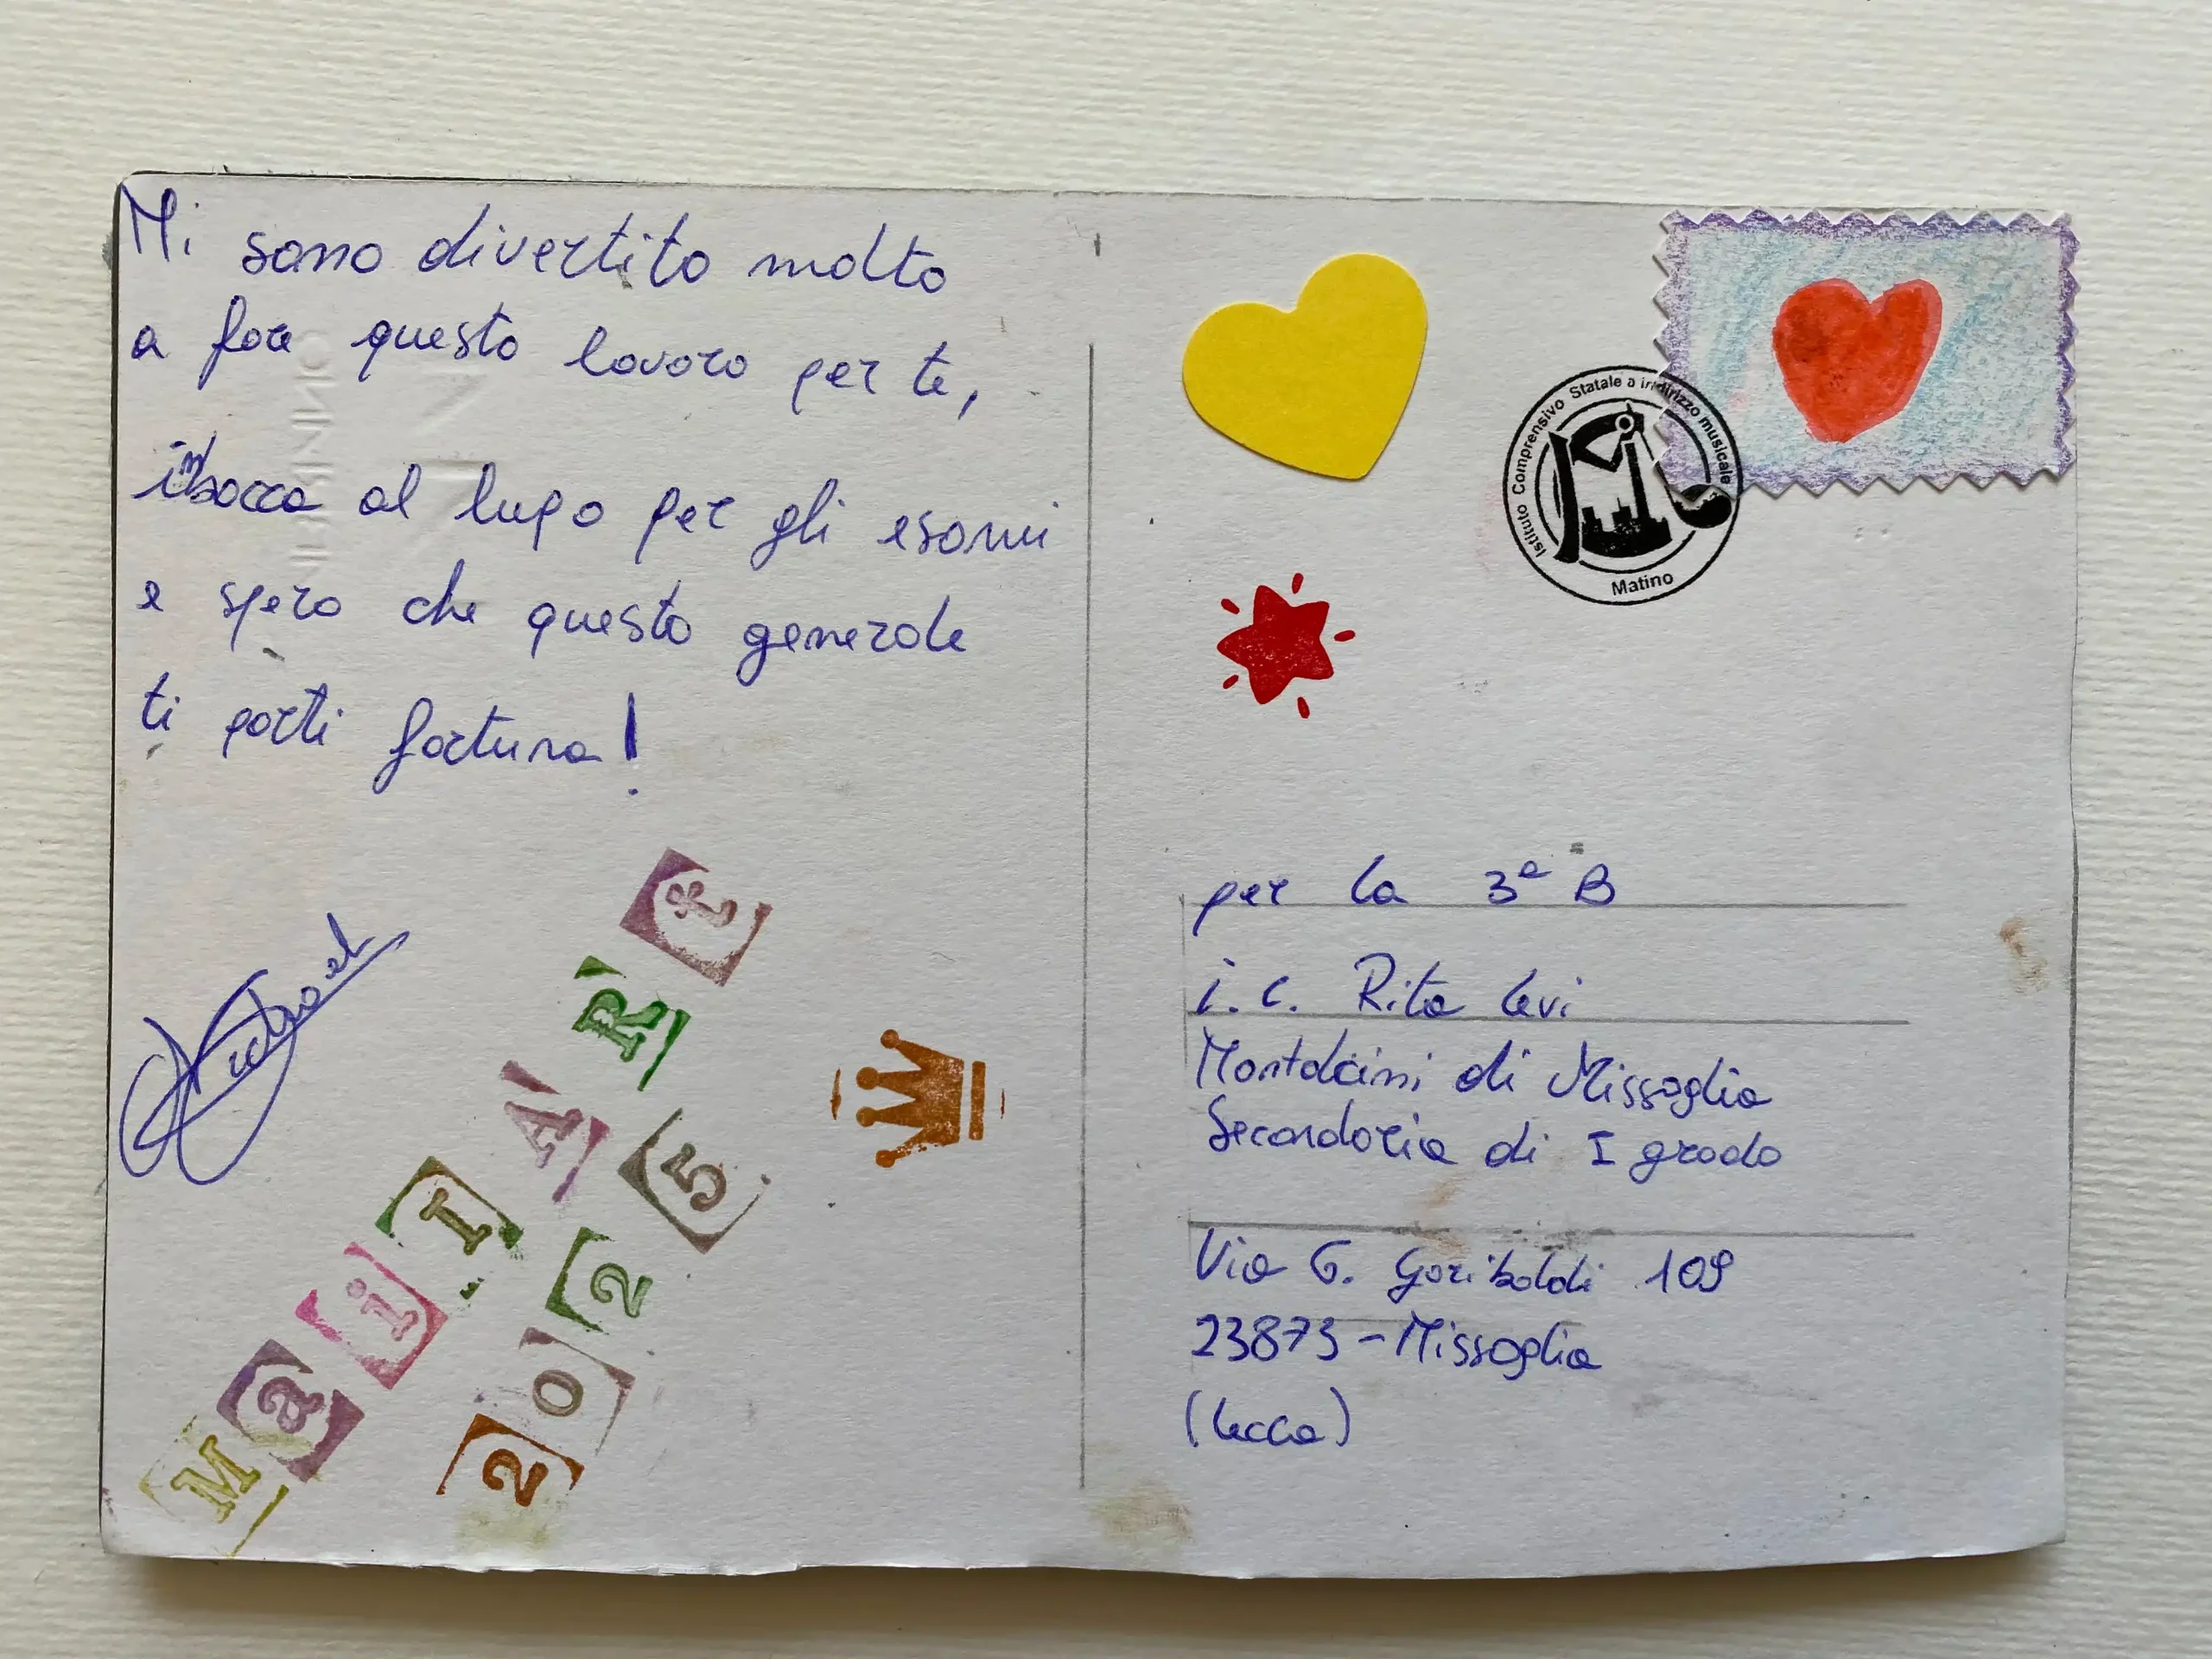 Mi sono divertito molto
a fare questo lavoro per te,
in bocca al lupo per gli esami
e spero che questo generale
ti porti fortuna!
MaiL ARt
2025
Istituto Comprensivo Statale a indirizzo musicale
Matino
per la 3ª B
i.c. Rita Levi
Montalcini di Missaglia
Secondaria di I grado
Via G. Garibaldi 109
23873 - Missaglia
(Lecco)